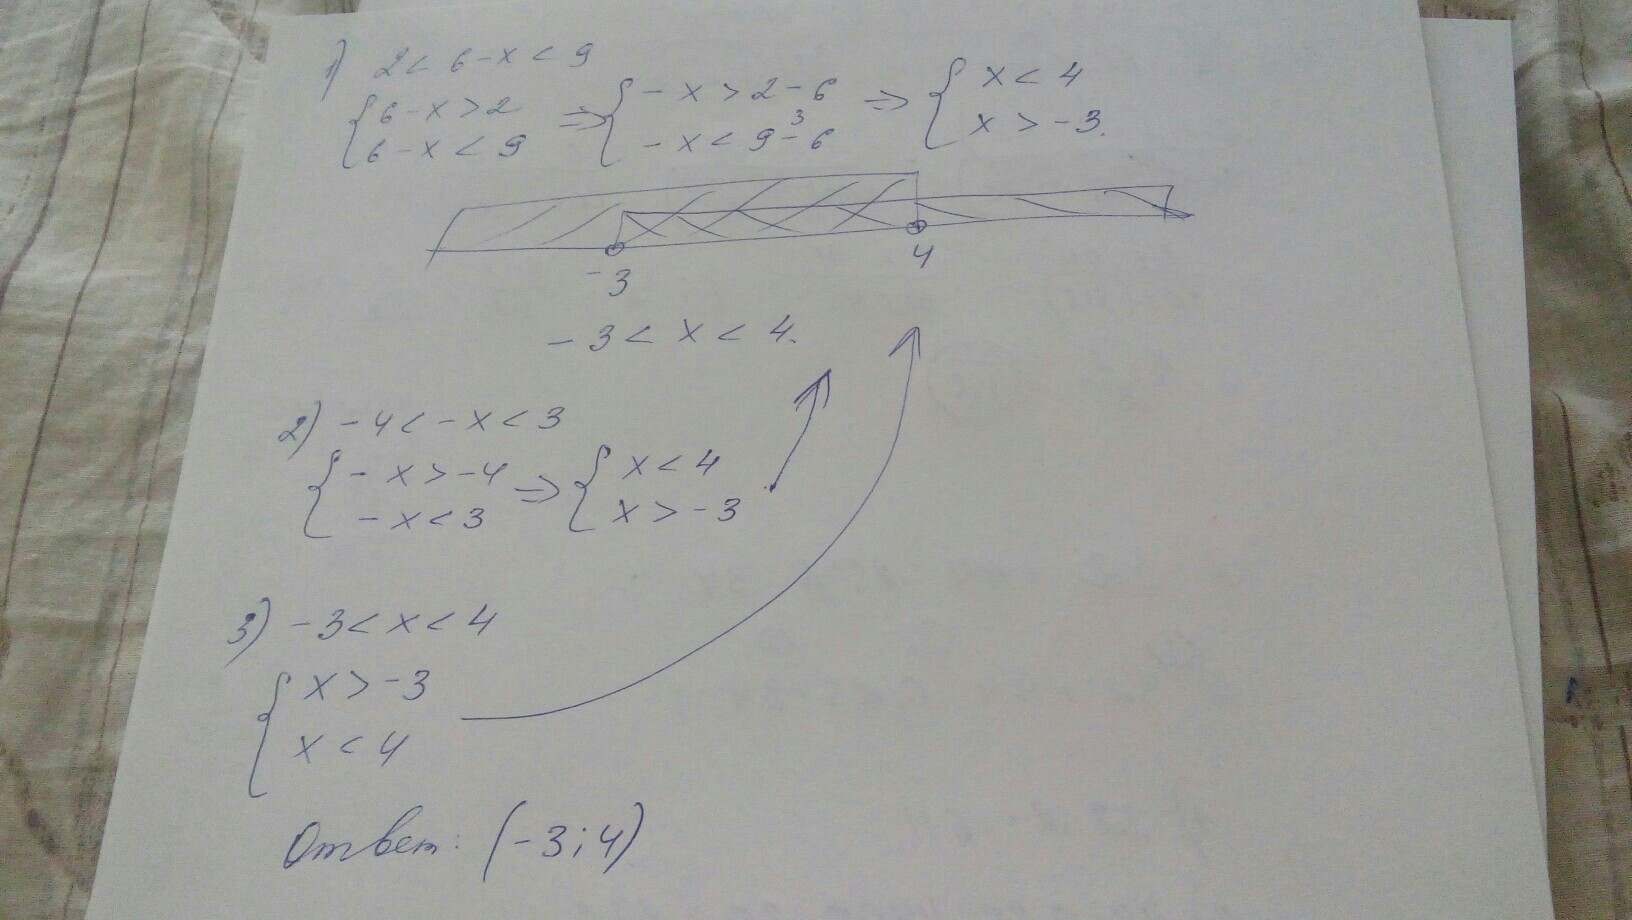 1) 2 < 6 - x < 9
{ 6 - x > 2 ⇒ { - x > 2 - 6 ⇒ { x < 4
{ 6 - x < 9 { - x < 9 - 6 { x > -3.
3
-3 4
- 3 < x < 4.
2) - 4 < - x < 3
{ - x > - 4 ⇒ { x < 4
{ - x < 3 { x > - 3
3) - 3 < x < 4
{ x > - 3
{ x < 4
Ответ: (-3; 4)